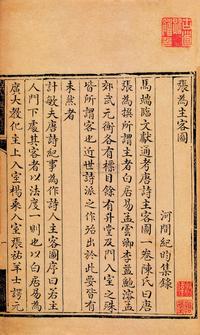 張為主客圖
河間紀昀集錄
馬端臨文獻通考唐詩主客圖一卷陳氏曰唐
張為撰所謂主者白居易孟雲卿李益鮑溶孟
郊武元衡各有標目餘有升堂及門入室之殊
皆所謂客也近世詩派之作殆出於此要皆有
未然者
計敏夫唐詩紀事為作詩人主客圖序曰若主
人門下處其客者以法度一則也以白居易為
廣大教化主上入室楊乘入室張祜羊士諤元